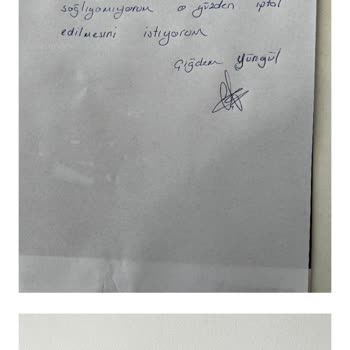 sağlıyamıyorum o yüzden iptal
edilmesini istiyorum
Çiğdem Yüngül